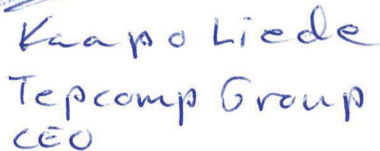 Kaapo Liede
Tepcomp Group
CEO